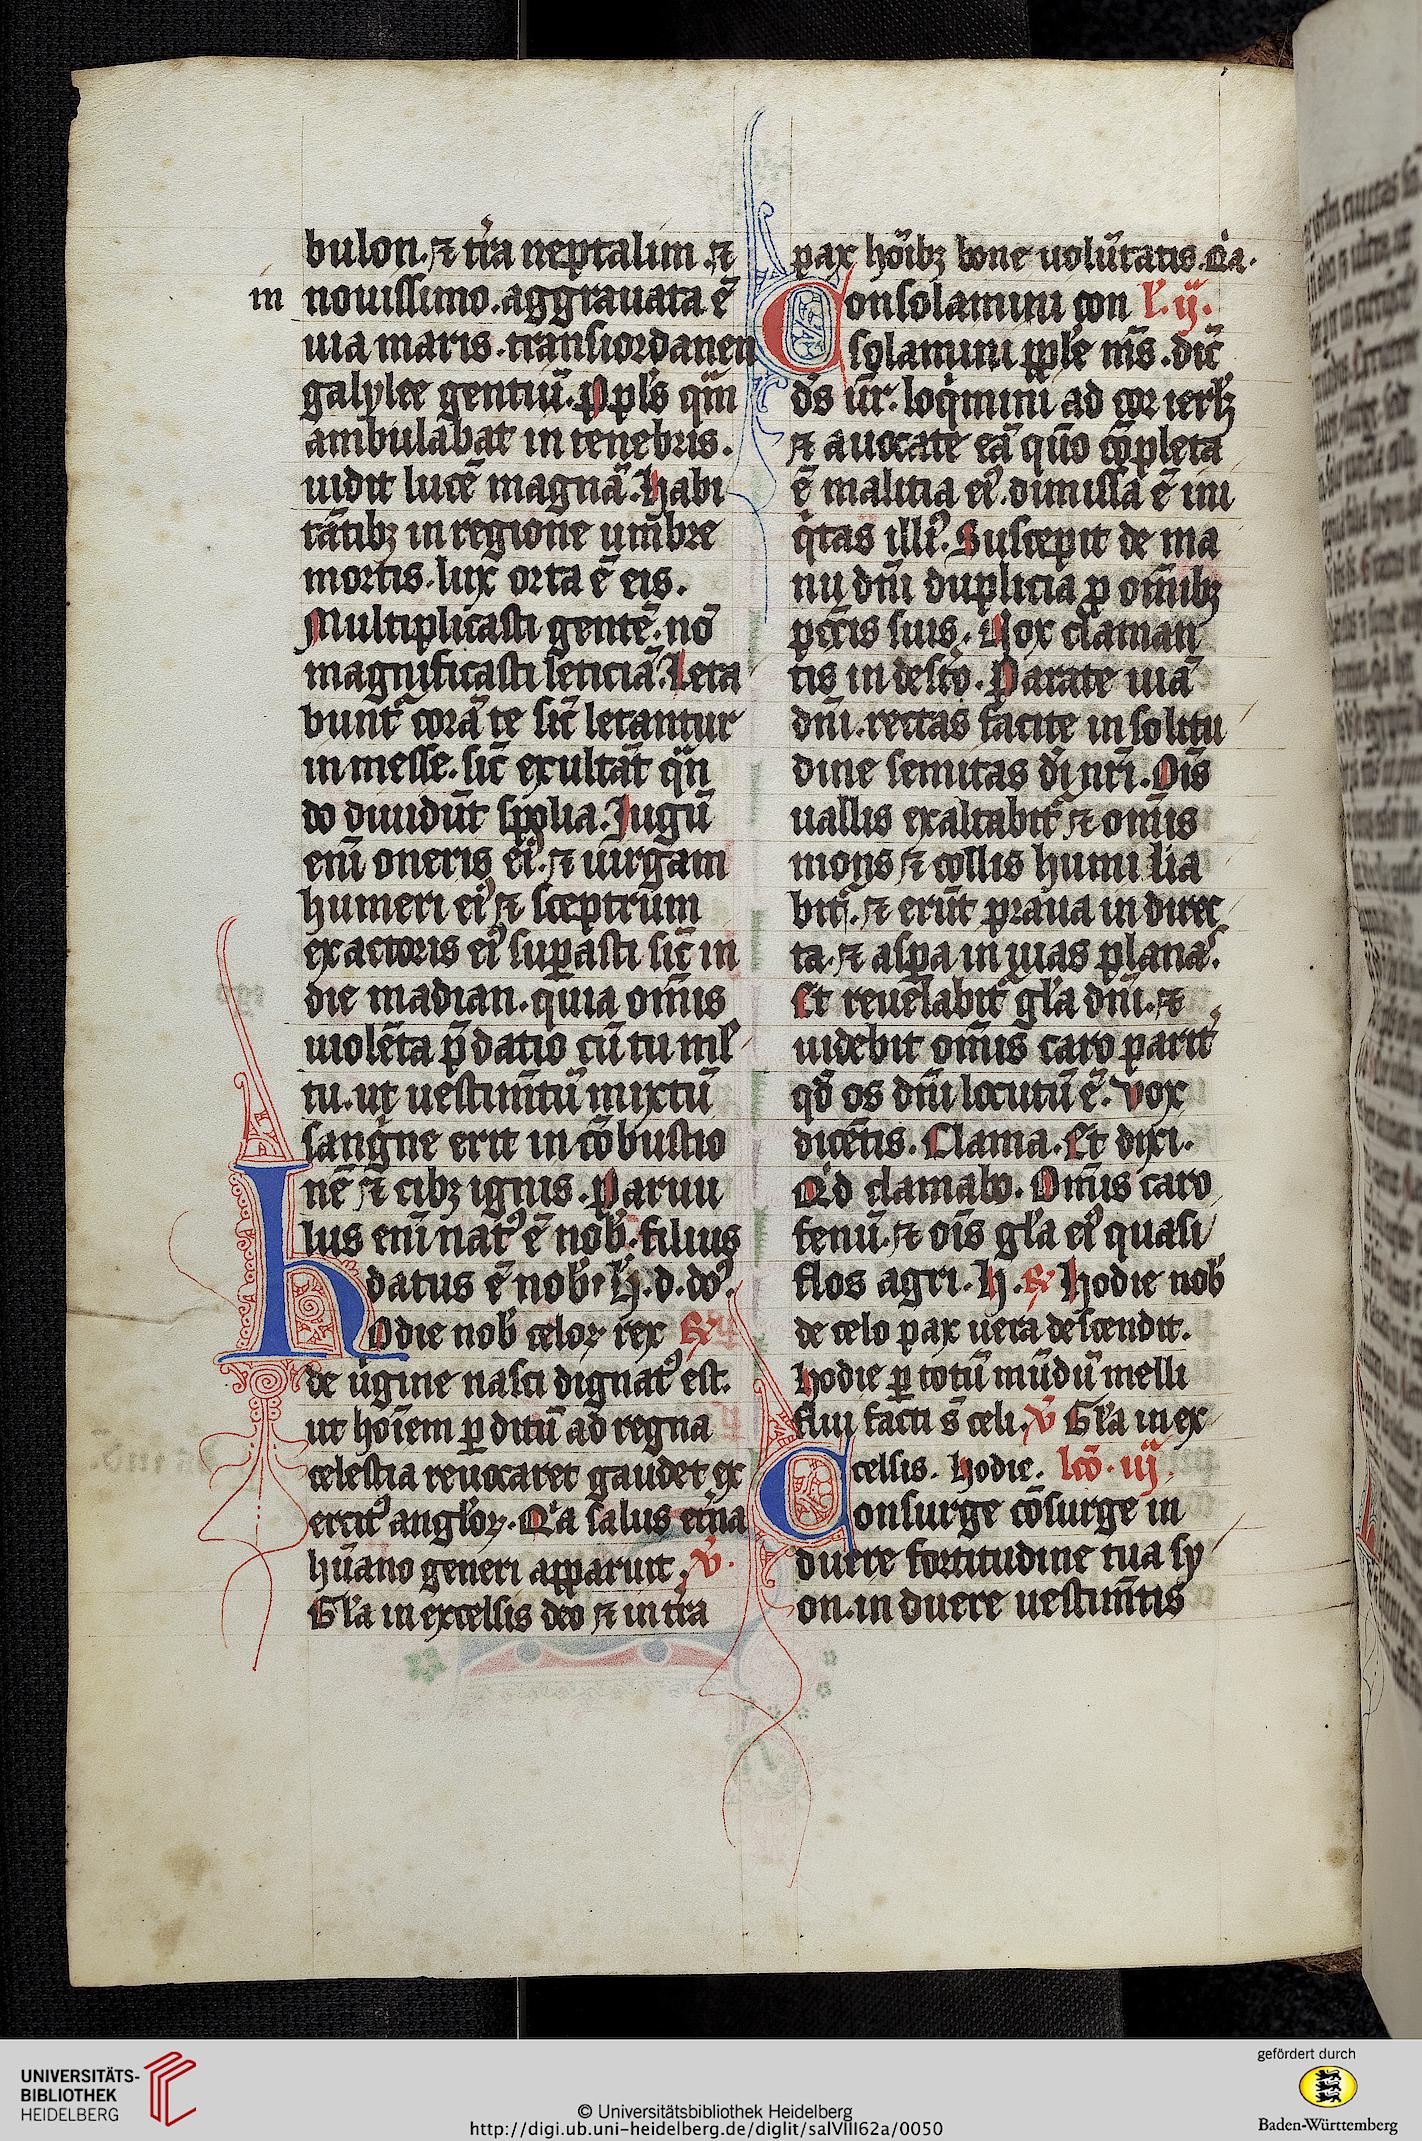 bulon. ⁊ tr̃a neptalim. ⁊
in nouissimo. aggrauata ẽ
uia maris. transiordanen
galylee gentiũ. Ppl's qui
ambulabat in tenebris.
uidit lucẽ magnã. Habi
tãtibꝫ in regione umbre
mortis. lux orta ẽ eis.
Multiplicasti gentẽ. nõ
magnificasti leticiã. Leta
bunt̃ corã te sic̃ letantur
in messe. sic̃ exultãt qñ
do diuidũt spolia. Iugũ
eni oneris ei᷒. ⁊ uirgam
humeri ei᷒ ⁊ sceptrum
exactoris ei᷒ suꝑasti sic̃ in
die madian. quia om̃is
uiolẽta p̃datio cũ tumul
tu. ut uestim̃tũ mixtũ
sangͥne erit in cõbustio
nẽ ⁊ cibꝫ ignis. Paruu
lus eni nat᷒ ẽ nob̾. filius
datus ẽ nob̾. H. d. do᷒.
Hodie nob̾ celoꝝ rex ℟
de uͥgine nasci dignat᷒ est.
ut hoĩem ꝑditũ ad regna
celestia reuocaret gaudet ex
ercit᷒ angl'oꝝ. Qͥa salus et̾na
hũano generi apparuit. ℣.
Gl'a in excelsis deo ⁊ in tr̃a
pax hoĩbꝫ bone uolũtatis. Qͥa.
Consolamini con L'. ij.
solamini ppl'e m̃s. dic̃
ds̃ ur̃. loqͥmini ad cor ierl̃ꝫ
⁊ auocate eã qm̃o cõpleta
ẽ malitia ei᷒. dimissa ẽ ini
qͥtas illi᷒. Suscepit de ma
nu dñi duplicia ꝓ om̃ibꝫ
pctĩs suis. Uox claman
tis in des̾to. Parate uiã
dñi. rectas facite in solitu
dine semitas di nr̃i. Oĩs
uallis exaltabit̃ ⁊ omĩs
mons ⁊ collis humilia
bit̃. ⁊ erũt praua in direc
ta. ⁊ asꝑa in uias planas.
Et reuelabit̃ gl'a dñi. ⁊
uidebit omĩs caro parit̾
qđ os dñi locutũ ẽ. Vox
dicẽtis. Clama. Et dixi.
Qͥd clamabo. Om̃is caro
fenũ. ⁊ oĩs gl'a ei᷒ quasi
flos agri. H. ℟ Hodie nob̾
de celo pax uera descendit.
Hodie ꝑ totũ mũdũ melli
flui facti s̃ celi. ℣ Gl'a in ex
celsis. Hodie. lcõ. iij.
Consurge cõsurge in
duere fortitudine tua sy
on. induere uestim̃tis
UNIVERSITÄTS-
BIBLIOTHEK
HEIDELBERG
© Universitätsbibliothek Heidelberg
http://digi.ub.uni-heidelberg.de/diglit/salVIII62a/0050
gefördert durch
Baden-Württemberg